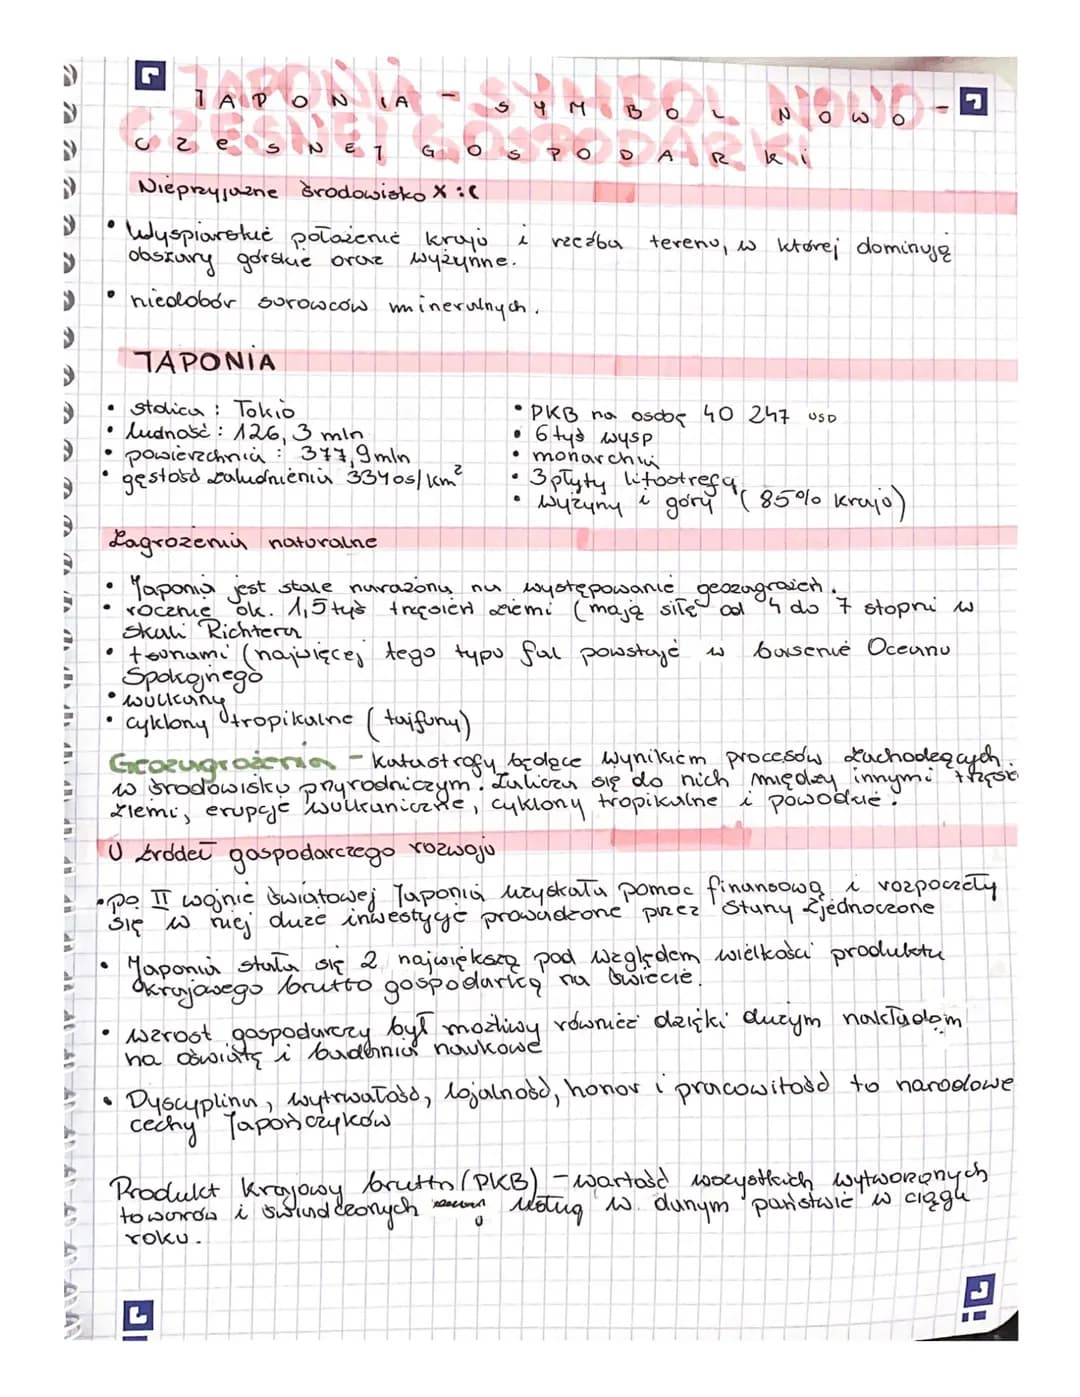 JAPONIA - SYMBOL NOWO-
CZESNEJ GOSPODARKI
Nieprzyjazne środowisko x :(
• Wyspiarskie położenie kraju i rzeźba terenu, w której dominują
obszary górskie oraz wyżynne.
• niedobór surowców mineralnych.
JAPONIA
• stolica : Tokio
• ludność : 126,3 mln
• powierzchnia : 377,9 mln
• gęstość zaludnienia 334 os/km²
• PKB na osobę 40 247 USD
• 6 tyś wysp
• monarchia
• 3 płyty litosfery
• wyżyny i góry (85% kraju)
Zagrożenia naturalne
• Japonia jest stale narażona na występowanie geozagrożeń.
• rocznie ok. 1,5 tyś trzęsień ziemi (mają siłę od 4 do 7 stopni w
skali Richtera
• tsunami (najwięcej tego typu fal powstaje w basenie Oceanu
Spokojnego
• wulkany
• cyklony tropikalne (tajfuny)
Geozagrożenia - katastrofy będące wynikiem procesów zachodzących
w środowisku przyrodniczym. Zalicza się do nich między innymi trzęsie
ziemi, erupcje wulkaniczne, cyklony tropikalne i powodzie.
U źródeł gospodarczego rozwoju
• po II wojnie światowej Japonia uzyskała pomoc finansową i rozpoczęły
się w niej duże inwestycje prowadzone przez Stany Zjednoczone
• Japonia stała się 2 największą pod względem wielkości produktu
krajowego brutto gospodarką na świecie.
• wzrost gospodarczy był możliwy również dzięki dużym nakładom
na oświatę i badania naukowe
• Dyscyplina, wytrwałość, lojalność, honor i pracowitość to narodowe
cechy Japończyków
Produkt Krajowy brutto (PKB) - wartość wszystkich wytworzonych
towarów i świadczonych usług w danym państwie w ciągu
roku.